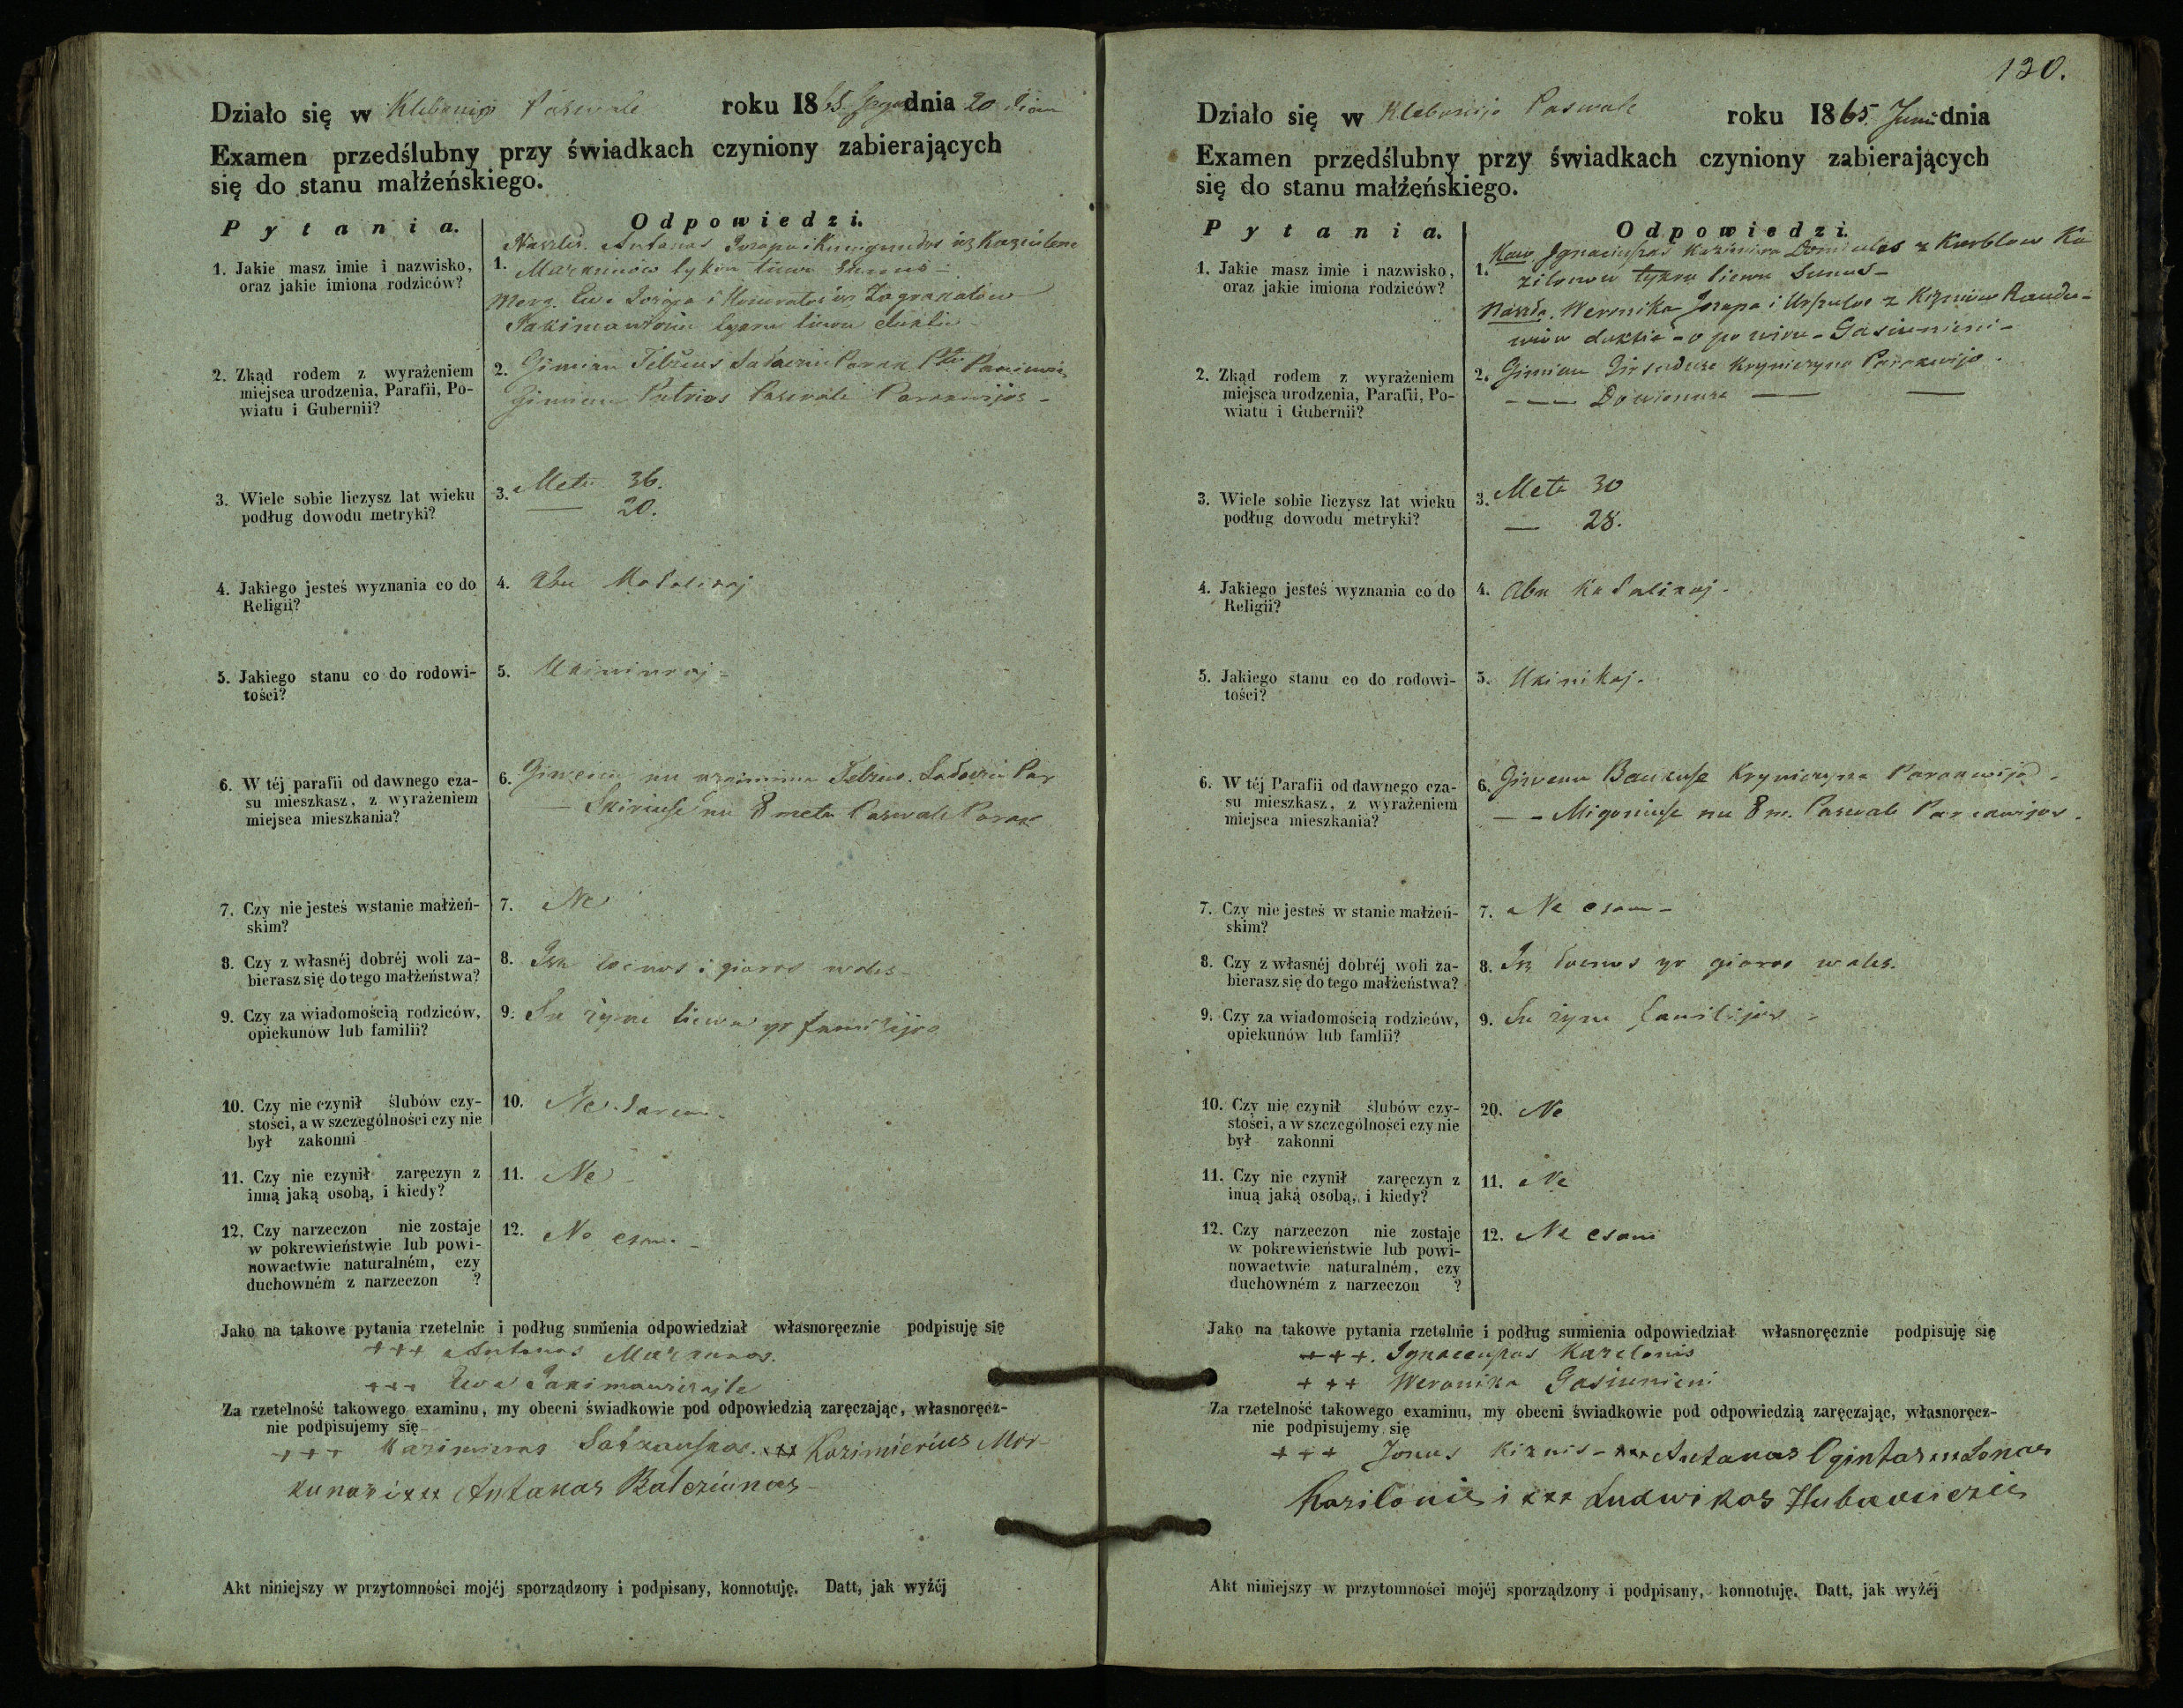 Działo się w Klebonijo Paswale roku 1865 dnia 20 dien
Examen przedślubny przy świadkach czyniony zabierających
się do stanu małżeńskiego.
Pytania. Odpowiedzi.
1. Jakie masz imie i nazwisko,
oraz jakie imiona rodziców?
1. Naszlis. Antanas Jozapa i Kunigundos isz
Markunow tykru tiewu sunus -
Merg. Ewa Jozapa i Honoratos isz
tykru tiewu duktie -
2. Zkąd rodem z wyrażeniem
miejsca urodzenia, Parafii, Po-
wiatu i Gubernii?
2. Gimiau Parak
Gimiau Paswale Parakwijos -
3. Wiele sobie liczysz lat wieku
podług dowodu metryki?
3. Metu 36.
— 20.
4. Jakiego jesteś wyznania co do
Religii?
4. Abu Katalikaj
5. Jakiego stanu co do rodowi-
tości?
5. Ukininkaj -
6. W téj parafii od dawnego cza-
su mieszkasz, z wyrażeniem
miejsca mieszkania?
6. Giwenu nu Par
— nu 8 metu Paswale Parak
7. Czy nie jesteś wstanie małżeń-
skim?
7. Ne
8. Czy z własnéj dobréj woli za-
bierasz się do tego małżeństwa?
8. Isz i gieros wales -
9. Czy za wiadomością rodziców,
opiekunów lub familii?
9. Su zyne tiewu yr familijos
10. Czy nie czynił ślubów czy-
stości, a w szczególności czy nie
był zakonni
10. Ne
11. Czy nie czynił zaręczyn z
inną jaką osobą, i kiedy?
11. Ne -
12. Czy narzeczon nie zostaje
w pokrewieństwie lub powi-
nowactwie naturalném, czy
duchowném z narzeczon ?
12. Ne esam -
Jako na takowe pytania rzetelnie i podług sumienia odpowiedział własnoręcznie podpisuję się
+++ Antanas Markunas.
+++ Ewa
Za rzetelność takowego examinu, my obecni świadkowie pod odpowiedzią zaręczając, własnoręcz-
nie podpisujemy się
+++ Kazimieras +++ Kazimierius Mar-
kunas i +++ Antanas Balcziunas -
Akt niniejszy w przytomności mojéj sporządzony i podpisany, konnotuję. Datt, jak wyżéj
130.
Działo się w Klebonijo Paswale roku 1865 Juni dnia
Examen przedślubny przy świadkach czyniony zabierających
się do stanu małżeńskiego.
Pytania. Odpowiedzi.
1. Jakie masz imie i nazwisko,
oraz jakie imiona rodziców?
1. Kaw Ignacupas Kazimiera z Ka
zilonow tykru tiewu Sunus -
Naszle. Weronika Jozapa i Urszulos z Kizniow
duktie - o po wiru - Gasiunieni -
2. Zkąd rodem z wyrażeniem
miejsca urodzenia, Parafii, Po-
wiatu i Gubernii?
2. Gimiau Kryniczyna Parakwijo.
3. Wiele sobie liczysz lat wieku
podług dowodu metryki?
3. Metu 30
— 28.
4. Jakiego jesteś wyznania co do
Religii?
4. Abu Katalikaj -
5. Jakiego stanu co do rodowi-
tości?
5. Ukinikaj.
6. W téj Parafii od dawnego cza-
su mieszkasz, z wyrażeniem
miejsca mieszkania?
6. Giwenu Kryniczyna Parakwijo -
— - Migoniuse nu 8 m. Paswale Parakwijos.
7. Czy nie jesteś w stanie małżeń-
skim?
7. Ne esam -
8. Czy z własnéj dobréj woli za-
bierasz się do tego małżeństwa?
8. Isz yr gieros wales.
9. Czy za wiadomością rodziców,
opiekunów lub famlii?
9. Su zyne familijos -
10. Czy nie czynił ślubów czy-
stości, a w szczególności czy nie
był zakonni
20. Ne
11. Czy nie czynił zaręczyn z
inuą jaką osobą, i kiedy?
11. Ne
12. Czy narzeczon nie zostaje
w pokrewieństwie lub powi-
nowactwie naturalném, czy
duchowném z narzeczon ?
12. Ne esam
Jako na takowe pytania rzetelnie i podług sumienia odpowiedział własnoręcznie podpisuję się
+++. Ignacupas Kazelonis
+++ Weronika Gasiunieni
Za rzetelność takowego examinu, my obecni świadkowie pod odpowiedzią zaręczając, własnoręcz-
nie podpisujemy się
+++ Jonas Kiznis - +++ Antanas Ogintas +++ Jonas
Kazilonis i +++ Ludwikas
Akt niniejszy w przytomności mojéj sporządzony i podpisany, konnotuję. Datt, jak wyżéj